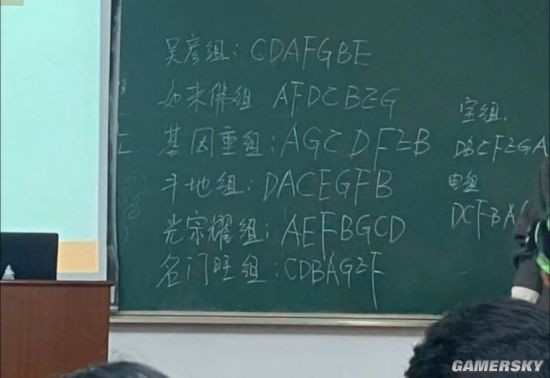 吴彦组：CDAFGBE
如来佛组 AFDCBEG
基因重组：AGCDFEB
斗地组：DACEGFB
光宗耀组：AEFBGCD
名门旺组：CDBAGEF
宝组：
DBCFEGA
电组
DCFBA
GAMERSKY